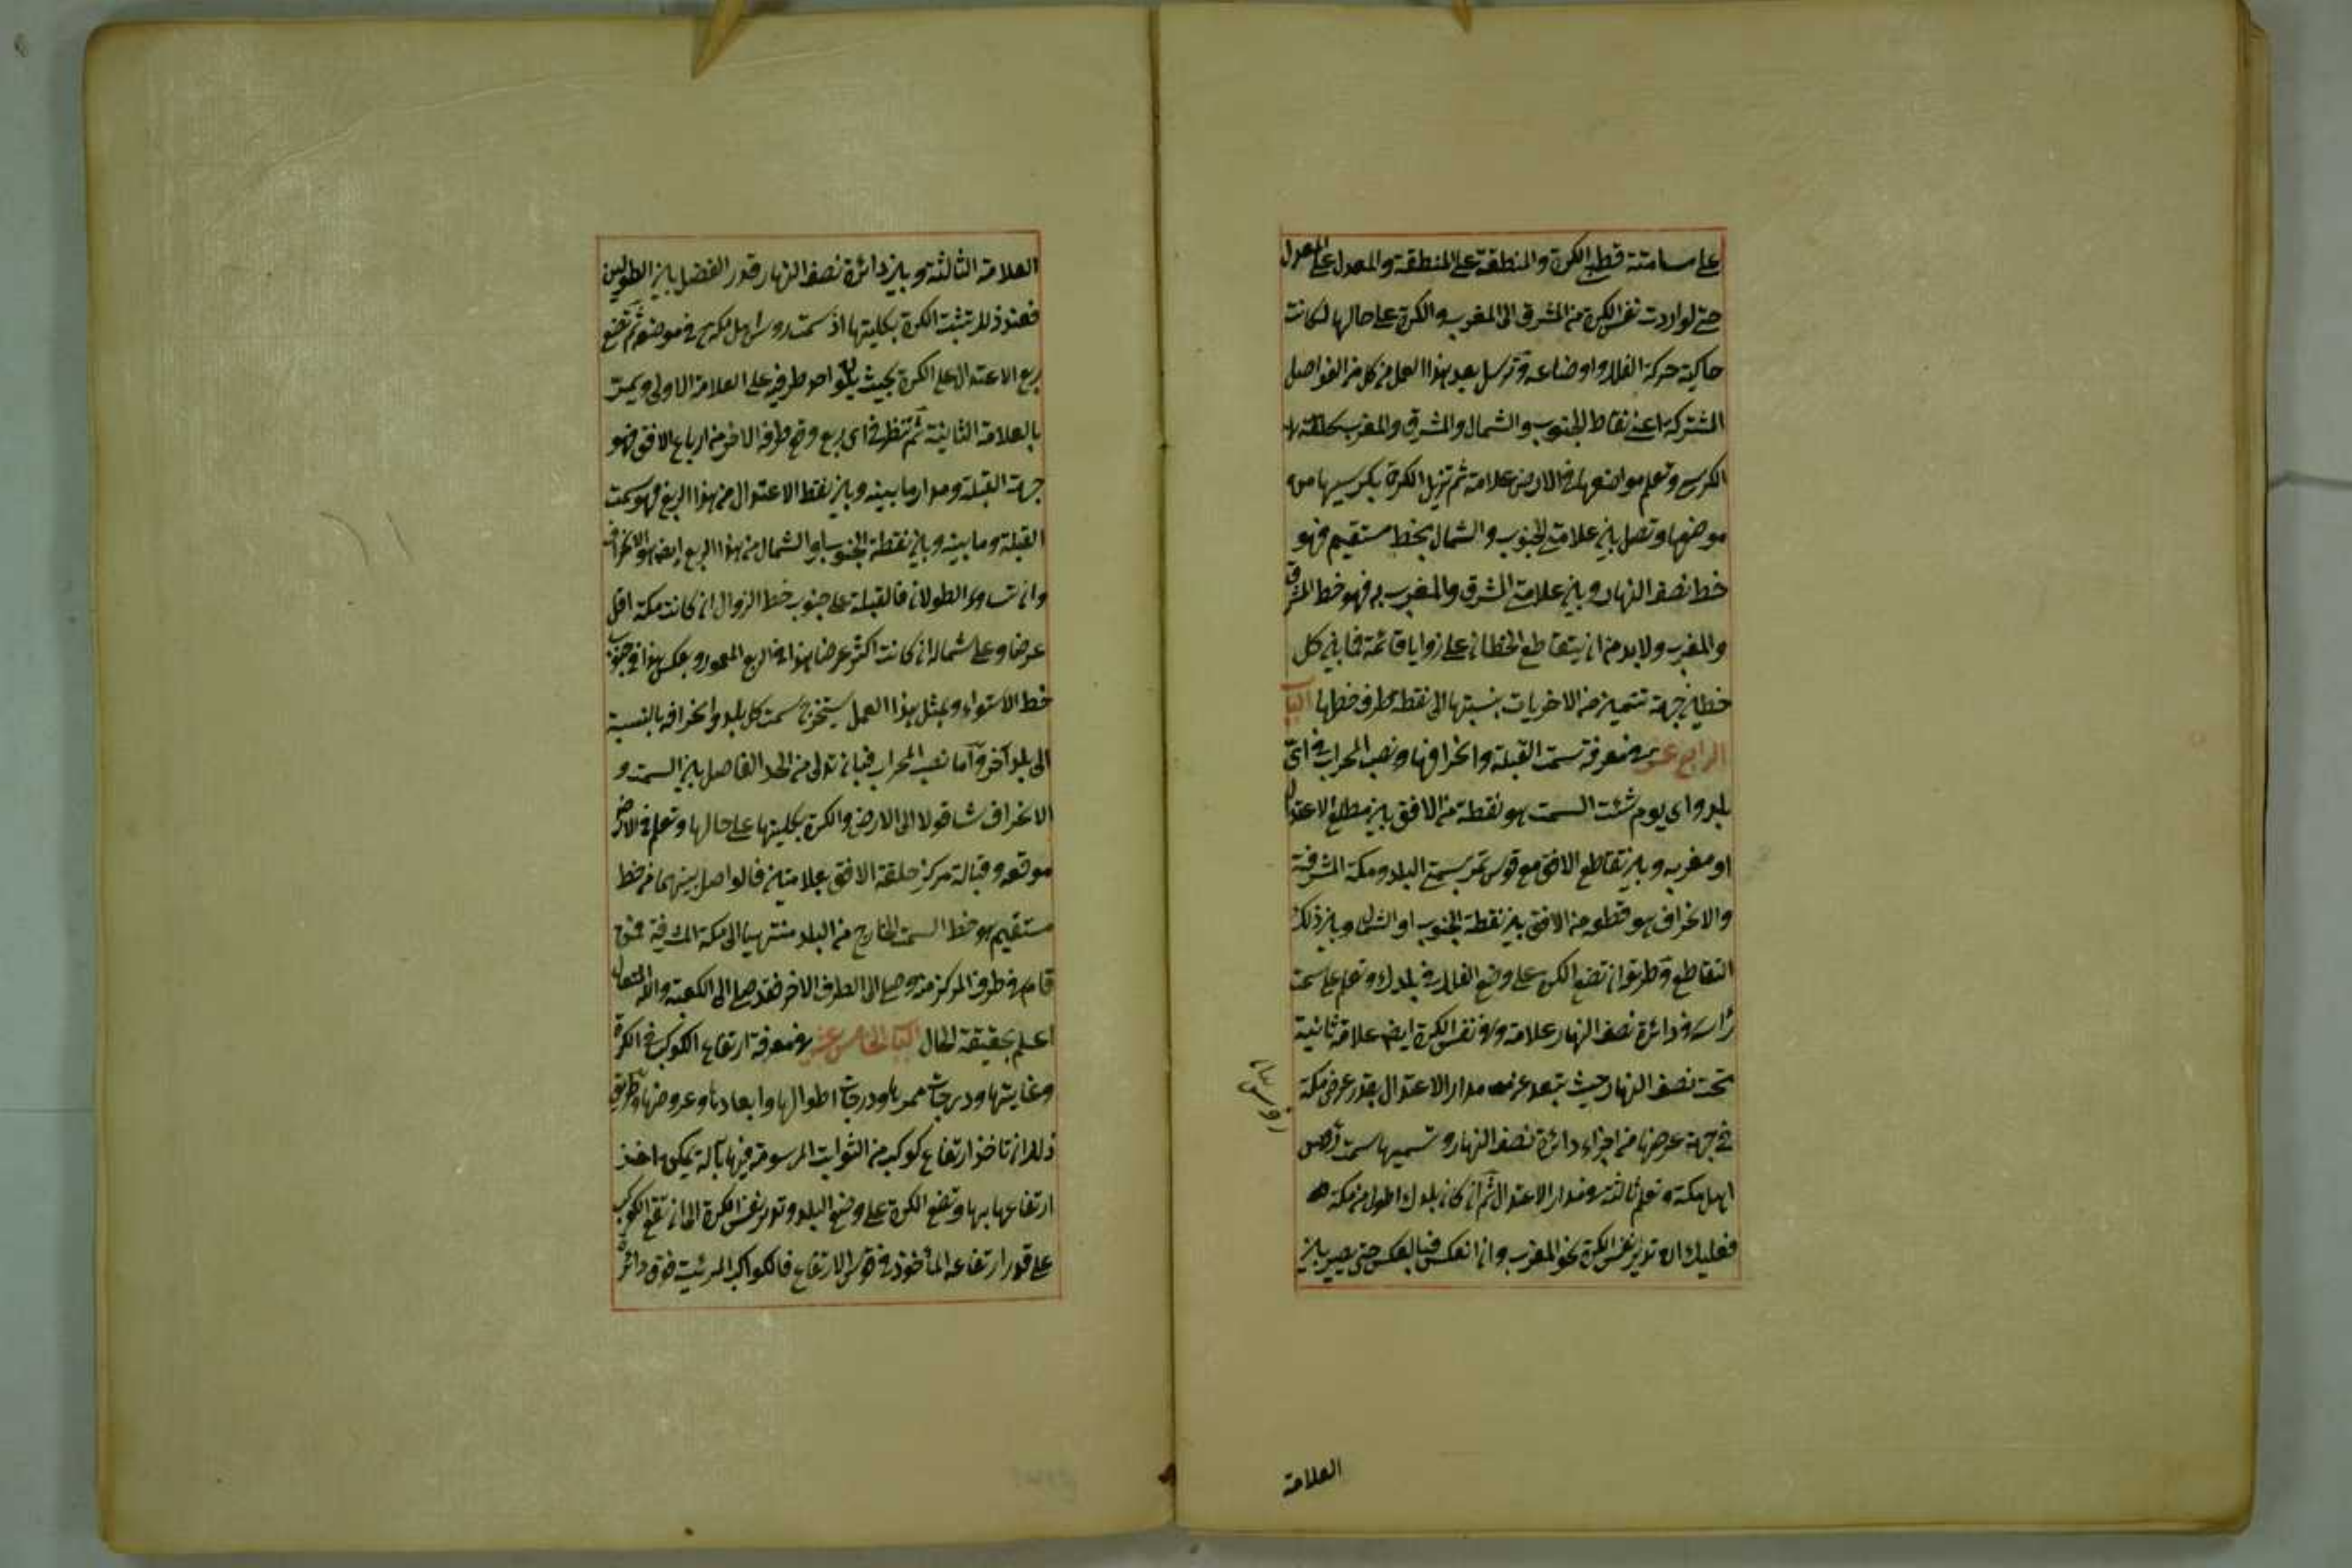 على مسامتة قطبي الكرة والمنطقة على المنطقة والمعدل على المعدل
حتى لو اردت نفس الكرة من المشرق الى المغرب والكرة على حالها لكانت
حاكية حركة الفلك واوضاعه وترسل بعد هذا العمل من كل من الفواصل
المشتركة اعني نقاط الجنوب والشمال والمشرق والمغرب
الكرسي وتعلم مواضعها في الارض علامة ثم تزيل الكرة بكرسيها من
موضعها وتصل بين علامتي الجنوب والشمال بخط مستقيم فهو
خط نصف النهار وبين علامتي المشرق والمغرب به فهو خط المشرق
والمغرب ولا بد من ان يتقاطع الخطان على زوايا قائمة فما بين كل
خطين جهة تتميز من الاخريات بنسبتها الى نقطة طرف خطها الباب
الرابع عشر في معرفة سمت القبلة وانحرافها ونصب المحراب في اي
بلد واي يوم شئت السمت هو نقطة من الافق بين مطلع الاعتدال
او مغربه وبين تقاطع الافق مع قوس تمر بسمتي البلد ومكة المشرفة
والانحراف هو قطعه من الافق بين نقطة الجنوب او الشمال وبين ذلك
التقاطع وطريقه ان تضع الكرة على وضع الفلك في بلدك وتعلم على سمت
رأسك في دائرة نصف النهار علامة وفي نفس الكرة ايضا علامة ثانية
تحت نصف النهار حيث تبعد عن مدار الاعتدال بقدر عرض مكة
في جهة عرضها من اجزاء دائرة نصف النهار وتسميها سمت رؤس
اهل مكة وتعلم ثالثة في مدار الاعتدال ثم ان كان بلدك اطول من مكة
فعليك ان تدير نفس الكرة نحو المغرب وان انعكس فبالعكس حتى يصير بين
العلامة
العلامة الثالثة وبين دائرة نصف النهار قدر الفضل بين الطولين
فعند ذلك تثبت الكرة بكليتها اذ سمت روس اهل مكة في موضعه ثم تضع
ربع الاعتدال على الكرة بحيث يكون احد طرفيه على العلامة الاولى ويمر
بالعلامة الثانية ثم تنظر في اي ربع وقع طرفه الاخر من ارباع الافق فهو
جهة القبلة ومدار ما بينه وبين نقط الاعتدال من هذا الربع فهو سمت
القبلة وما بينه وبين نقطة الجنوب او الشمال من هذا الربع ايضا هو الانحراف
وان تساوى الطولان فالقبلة على جنوب خط الزوال ان كانت مكة اقل
عرضا وعلى شماله ان كانت اكثر عرضا هذا في الربع المعمور وبعكس هذا في جنوب
خط الاستواء وبمثل هذا العمل يستخرج سمت كل بلد وانحرافه بالنسبة
الى بلد آخر واما نصب المحراب فبان تدلى من الحد الفاصل بين السمت و
الانحراف شاقولا الى الارض والكرة بكليتها على حالها وتعلم في الارض
موقعه وقبالة مركز حلقة الافق بعلامتين فالواصل بينهما من خط
مستقيم هو خط السمت الخارج من البلد منتهيا الى مكة المشرفة فمتى
قام في طرف المركز منه وصلى الى الطرف الاخر فقد صلى الى الكعبة والله المتعال
اعلم بحقيقة الحال الباب الخامس عشر في معرفة ارتفاع الكوكب في الكرة
وغايتها ودرجات ممرها ودرجات اطوالها وابعادها وعروضها وطريق
ذلك ان تاخذ ارتفاع كوكب من الثوابت المرسومة فيها بآلة يمكن اخذ
ارتفاعها بها وتضع الكرة على وضع البلد وتدير نفس الكرة الى ان تقع الكوكب
على قدر ارتفاعه المأخوذ في قوس الارتفاع فالكواكب المرئية فوق دائرة